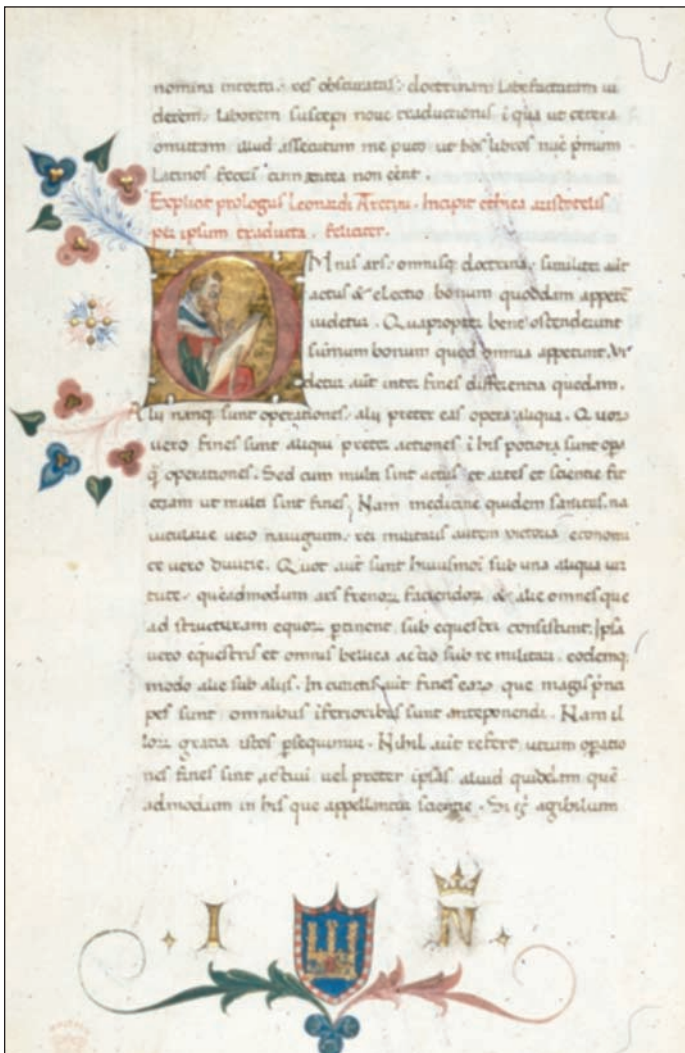 nomina inversa. res obscuratas. doctrinam labefactatam ui
derem. laborem suscepi noue traductionis i qua ut cetera
omittam illud assecutum me puto ut hos libros nuc pmum
Latinos feceri cum antea non eent.
Explicit prologus Leonardi Aretini. Incipit ethica aristotelis
per ipsum traducta. feliciter.
OMnis ars. omnisq doctrina. similiter aut
actus & electio bonum quoddam appete
uidetur. Quapropter bene ostenderunt
summum bonum quod omnia appetunt. Vi
detur aut inter fines differentia quedam.
Alij nanq sunt operationes. alij preter eas opera aliqua. Quor
uero fines sunt aliqui preter actiones i his potiora sunt opa
q operationes. Sed cum multi sint actus et artes et scientie fit
etiam ut multi sint fines. Nam medicine quidem sanitas. na
uicularie uero nauigium. rei militaris autem uictoria economi
ce uero diuitie. Quot aut sunt huiusmoi sub una aliqua uir
tute. queadmodum ars frenor faciendor & alie omnes que
ad structuram equor ptinent sub equestri consistunt. Ipsa
uero equestris et omnis bellica actio sub re militari. eodemq
modo alie sub alijs. In cunctis aut fines ear que magis pnci
pes sunt omnibus iferioribus sunt anteponendi. Nam il
lor gratia istos psequimur. Nihil aut refert utrum opatio
nes fines sint actuum uel preter ipsas aliud quidem que
admodum in his que appellantur scientie. Si g agibilium
I N